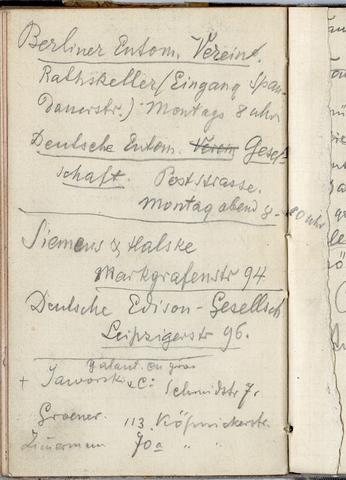 Berliner Entom. Verein.
Rathskeller (Eingang Span-
dauerstr.) Montags 8 uhr
Deutsche Entom. Verein Gesell-
schaft. Poststrasse.
Montag abend 8-10 uhr
Siemens & Halske
Markgrafenstr 94
Deutsche Edison-Gesellsch
Leipzigerstr 96.
Galant. en gros
+ Jaworski & C: Schmidstr 7.
Groener. 113. Köpnickerstr.
Zimermann 70a " "